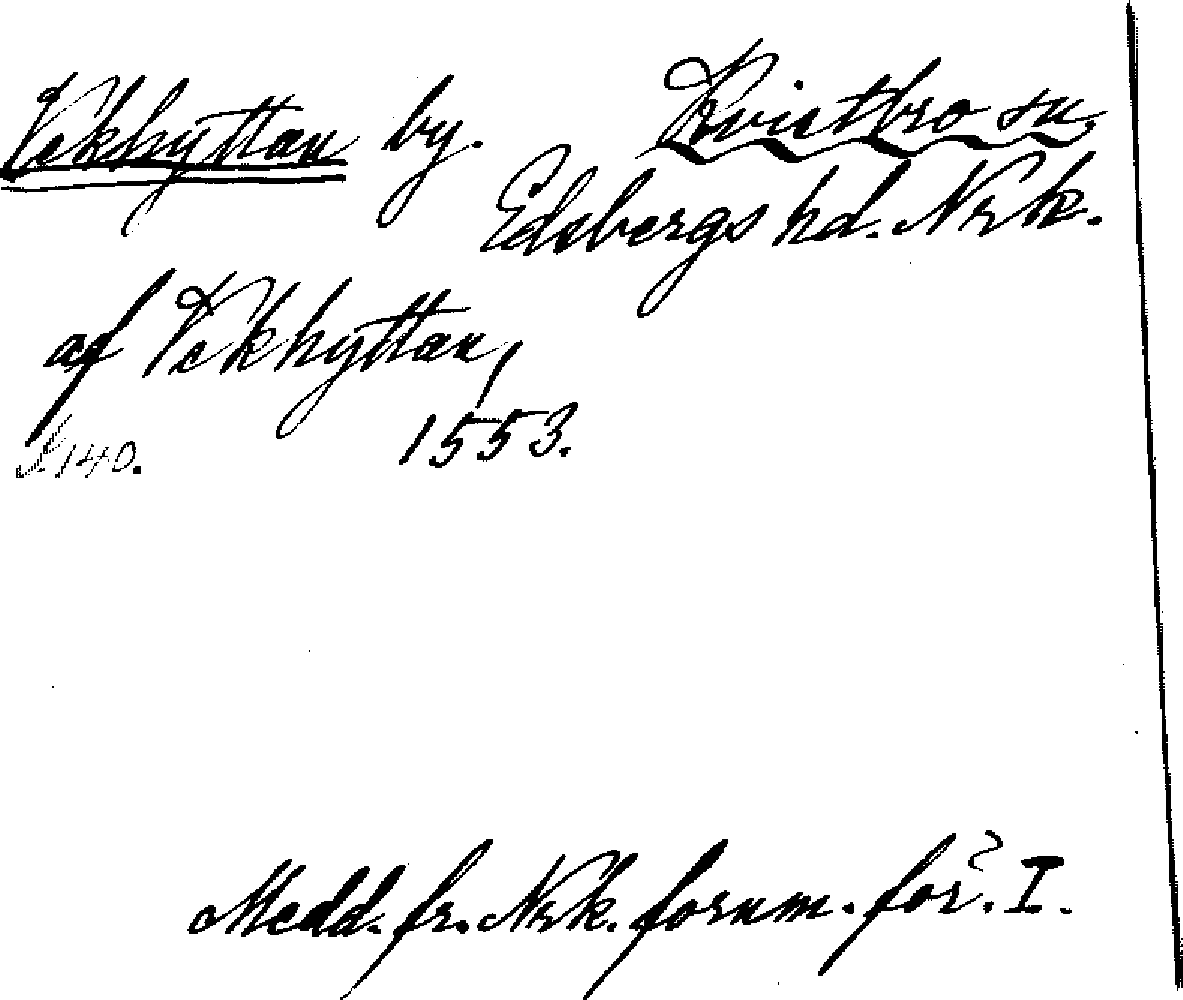 Vekhyttan by. Kvistbro sn,
Edsbergs hd. Nrk.
af Vekhyttan,
1553.
S. 140.
Medd. fr. Nrk. fornm. för. I.